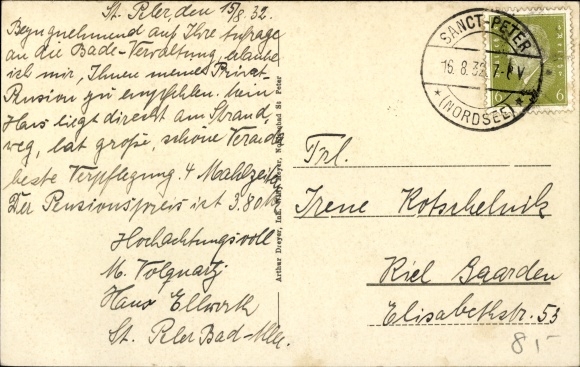 St. Peter, den 15/8. 32.
Bezugnehmend auf Ihre Anfrage
an die Bade-Verwaltung, erlaube
ich mir, Ihnen meine Privat-
Pension zu empfehlen. Mein
Haus liegt direkt am Strand,
weg, hat große, schöne Veranda
beste Verpflegung. 4 Mahlzeiten
Der Pensionspreis ist 3.80 M
Hochachtungsvoll
M. Volquartz
Haus Ellworth
St. Peter Bad-
Arthur Dreyer, Inh. Dreyer, Nordseebad St. Peter
SANCT-PETER
16.8.32.7-8V.
* (NORDSEE) *
6 6
Frl.
Irene Kotschelnik
Kiel Gaarden
Elisabethstr. 53
8,-